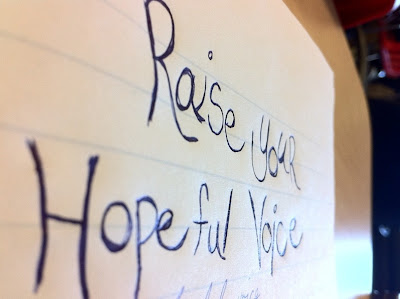 Raise your
Hopeful Voice